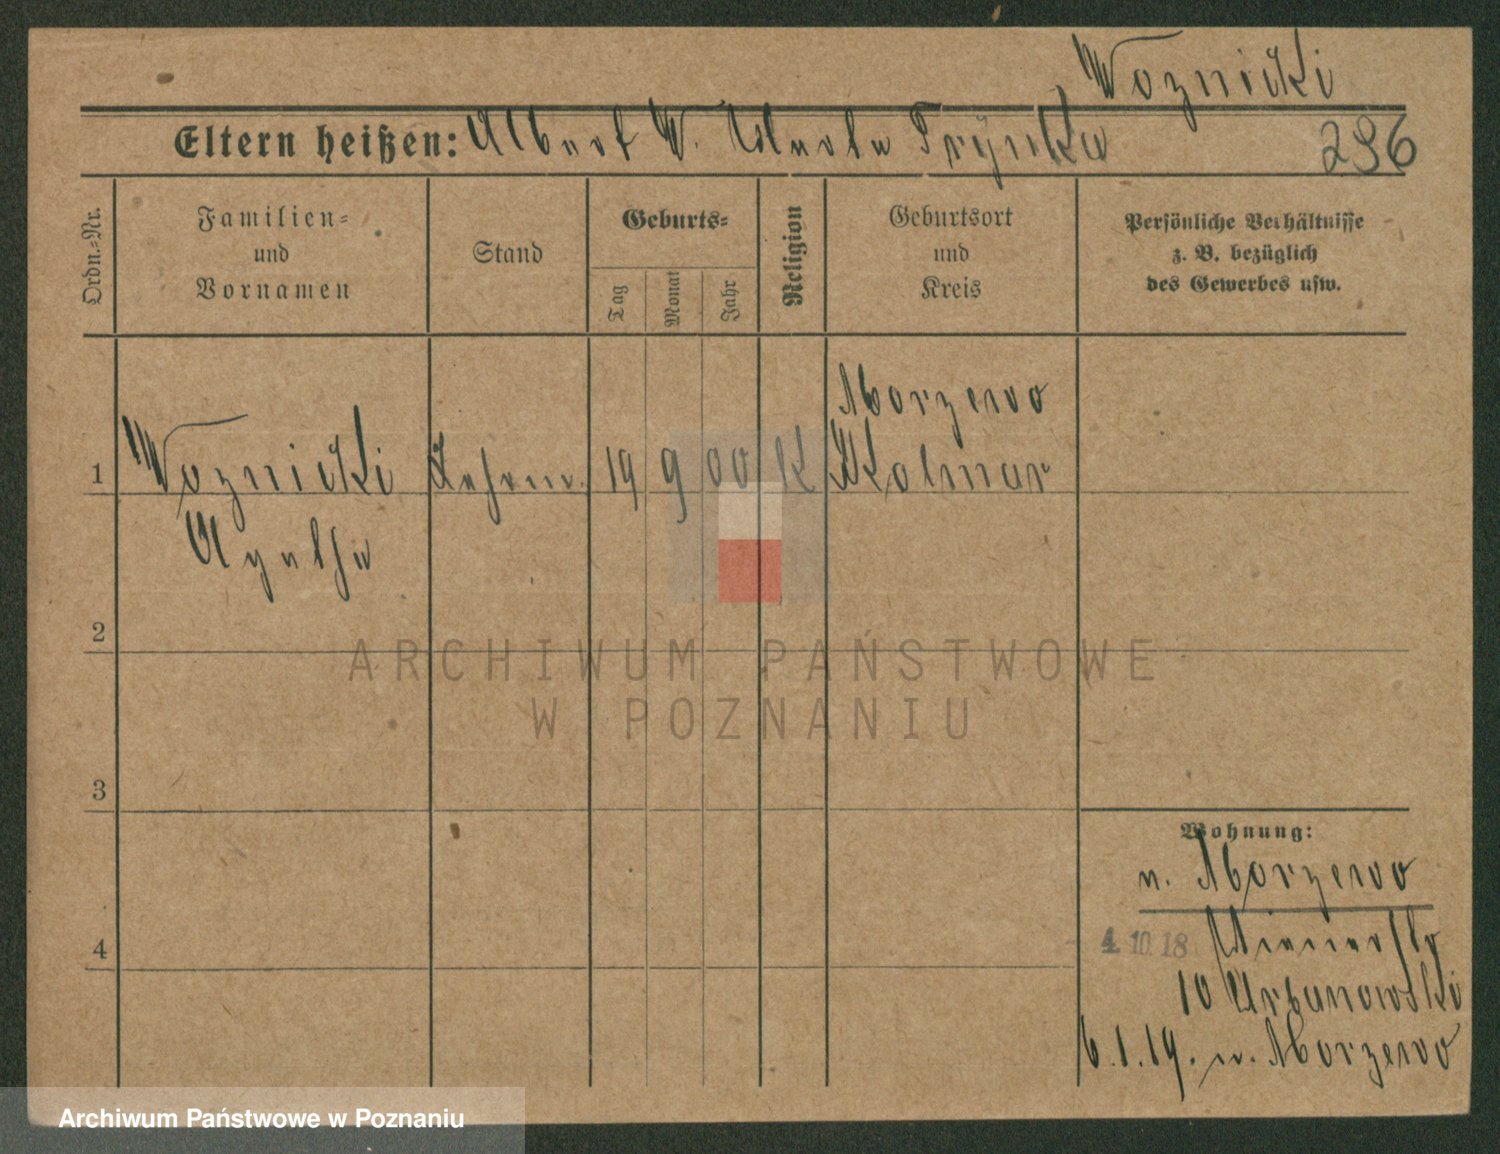 Woznicki
Eltern heißen: Albert W. Maria Trynka
296
Ordn.-Nr.
Familien-
und
Vornamen
Stand
Geburts-
Tag
Monat
Jahr
Religion
Geburtsort
und
Kreis
Persönliche Verhältnisse
z. B. bezüglich
des Gewerbes usw.
Morzewo
1 Woznicki 19 9 00 K Kolmar
Agatha
2
ARCHIWUM PAŃSTWOWE
W POZNANIU
3
Wohnung:
n. Morzewo
4
4. 10. 18
10 Urbanowski
6. 1. 19. n. Morzewo
Archiwum Państwowe w Poznaniu